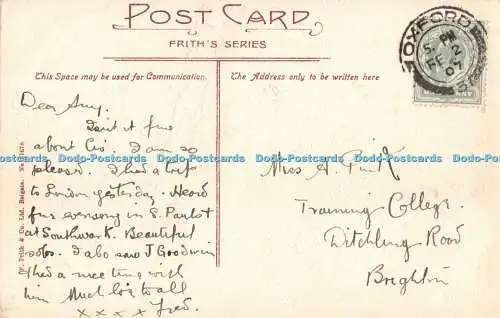 POST CARD
FRITH'S SERIES
This Space may be used for Communication.
The Address only to be written here
OXFORD
5 PM
FE 2
07
Dear Amy.
Isn't it fine
about Cis'. I am so
pleased. I had a trip
to London yesterday. Heard
fine evensong in S. Paul's &
at Southwark. Beautiful
solos. I also saw J Goodwin
& had a meeting with
him Much love to all
x x x x Fred.
Miss A.
Training College.
Ditchling Road
Brighton
[F. Frith & Co. Ltd. Reigate.
Dodo-Postcards Dodo-Postcards Dodo-Postcards Dodo-Postcards Dodo-Postcards Dodo-Postcards